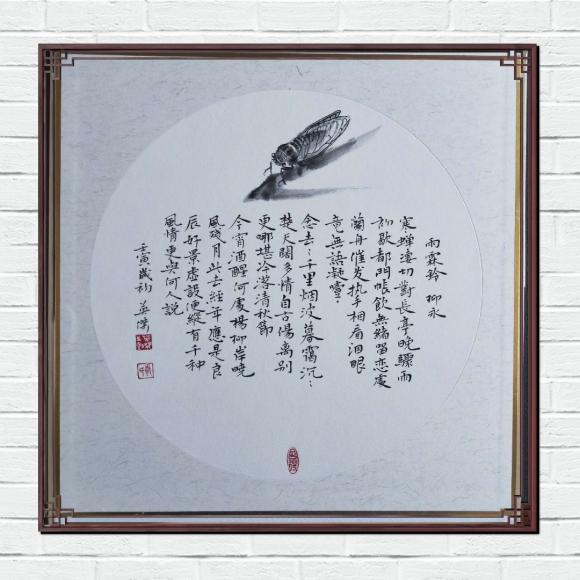 雨霖鈴 柳永
寒蟬凄切對長亭晚驟雨
初歇都門帳飲無緒留恋處
蘭舟催发执手相看泪眼
竟無語凝噎
念去:千里烟波暮靄沉:
楚天闊多情自古傷离别
更哪堪冷落清秋節
今宵酒醒何處楊柳岸曉
風殘月此去經年應是良
辰好景虚設便縱有千种
風情更與何人説
壬寅歲初 英